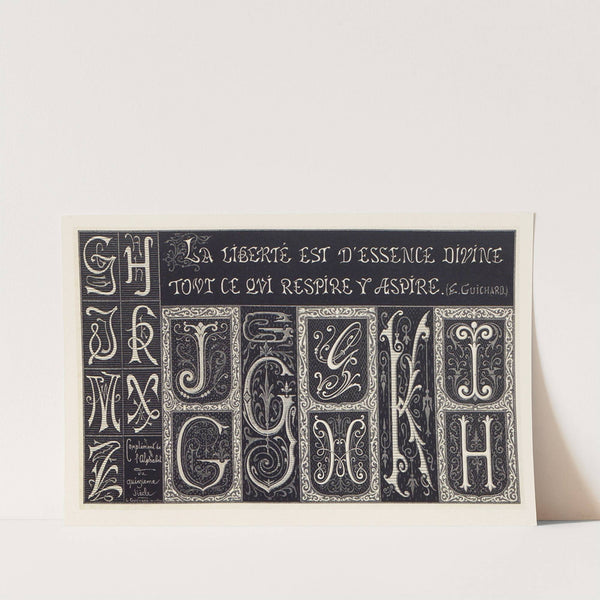 LA LIBERTÉ EST D'ESSENCE DIVINE
TOUT CE QUI RESPIRE Y ASPIRE. (E. GUICHARD.)
G H
J K
M X
Z
Complément de
l'Alphabet
du
quinzième
siècle
J G I
G K H